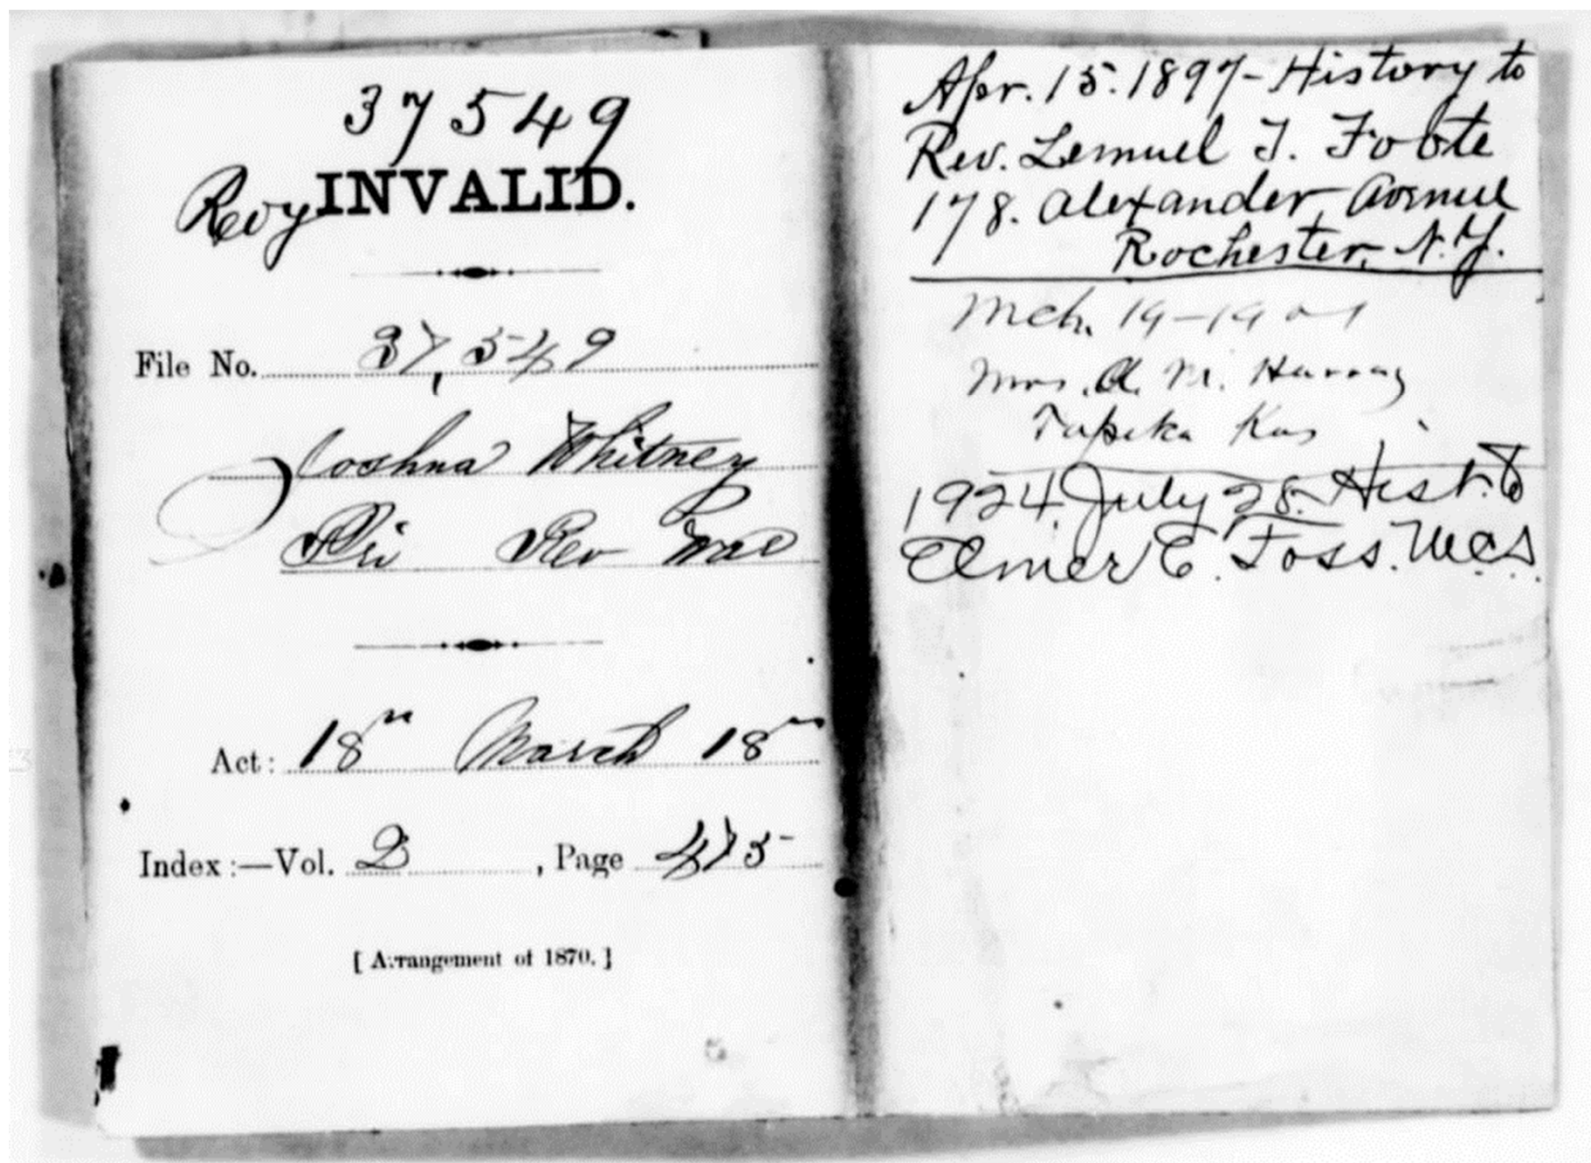 37549
Revy INVALID.
File No. 37,549
Joshua Whitney
Pri Rev War
Act: 18th March 18
Index:—Vol. 2, Page 475
[ Arrangement of 1870. ]
Apr. 15. 1897 - History to
Rev. Lemuel T. Foote
178. Alexander Avenue
Rochester, N.Y.
Mch. 19-1901
Mrs. A. M. Harvey
Topeka Kas
1924 July 28. Hist. to
Elmer E. Foss. M.C.S.